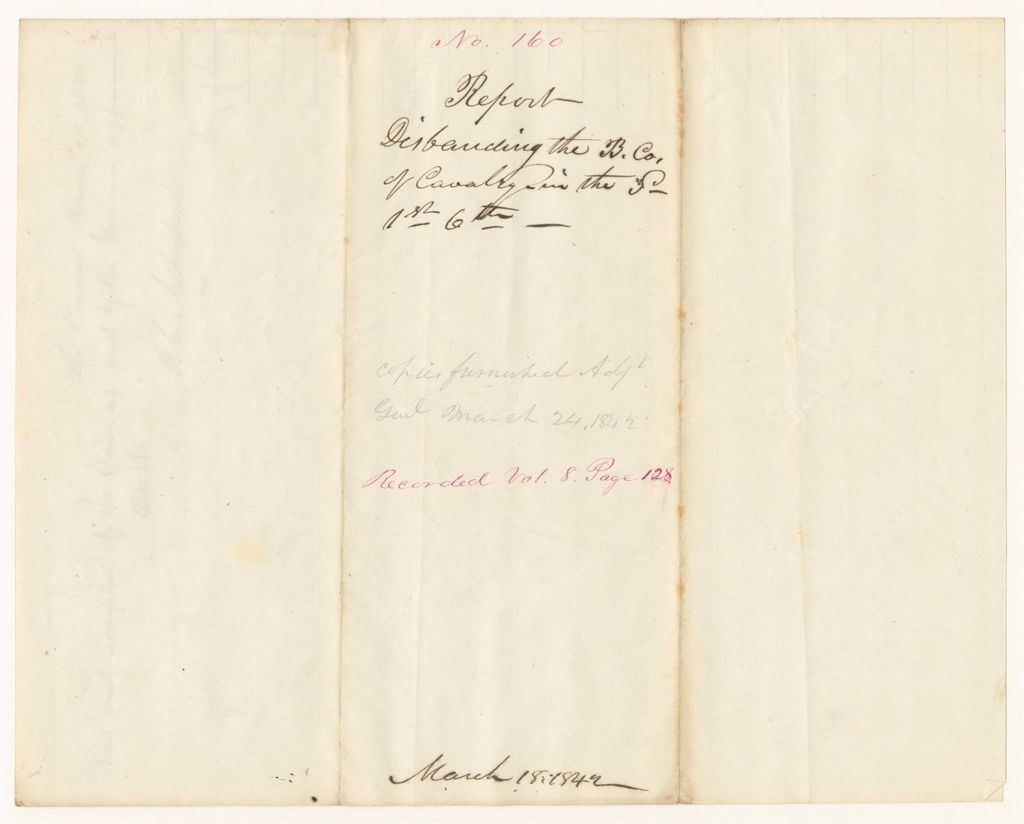 No. 160
Report
Disbanding the B. Co.
of Cavalry in the
1st 6th —
copies furnished Adjt
Genl March 24, 1842
Recorded Vol. 8. Page 128
March 18, 1842